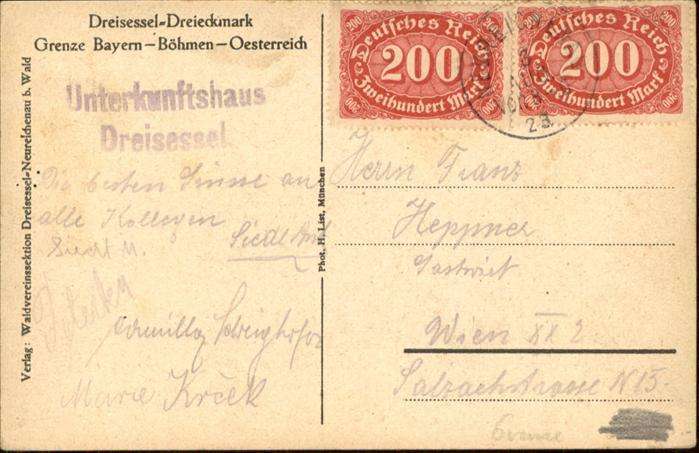 Dreisessel-Dreieckmark
Grenze Bayern—Böhmen—Oesterreich
Unterkunftshaus
Dreisessel.
Die besten Grüsse an
alle Kollegen
Siedl
Marie Krček
Verlag: Waldvereinssektion Dreisessel-Neureichenau b. Wald
Phot. H. List, München
200 200
Deutsches Reich
200
Zweihundert Mark
200 200
Deutsches Reich
200
Zweihundert Mark
AUG
23
Herrn Franz
Heppner
Gastwirt
Wien XX 2
Salzachstrasse N 15.